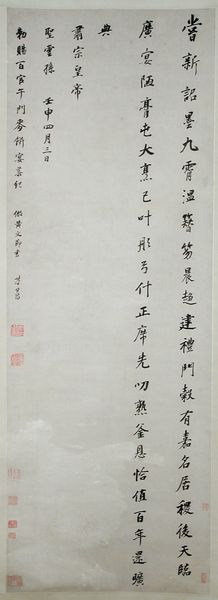 嘗新詔墨九霄溫簪笏晨趨建禮門穀有嘉名居稷後天臨
廣宴陋膏屯大烹已叶彤弓什正席先叨熟釜恩恰值百年還曠
典
肅宗皇帝
聖靈孫 壬申四月三日
勅賜百官午門麥餅宴喜紀